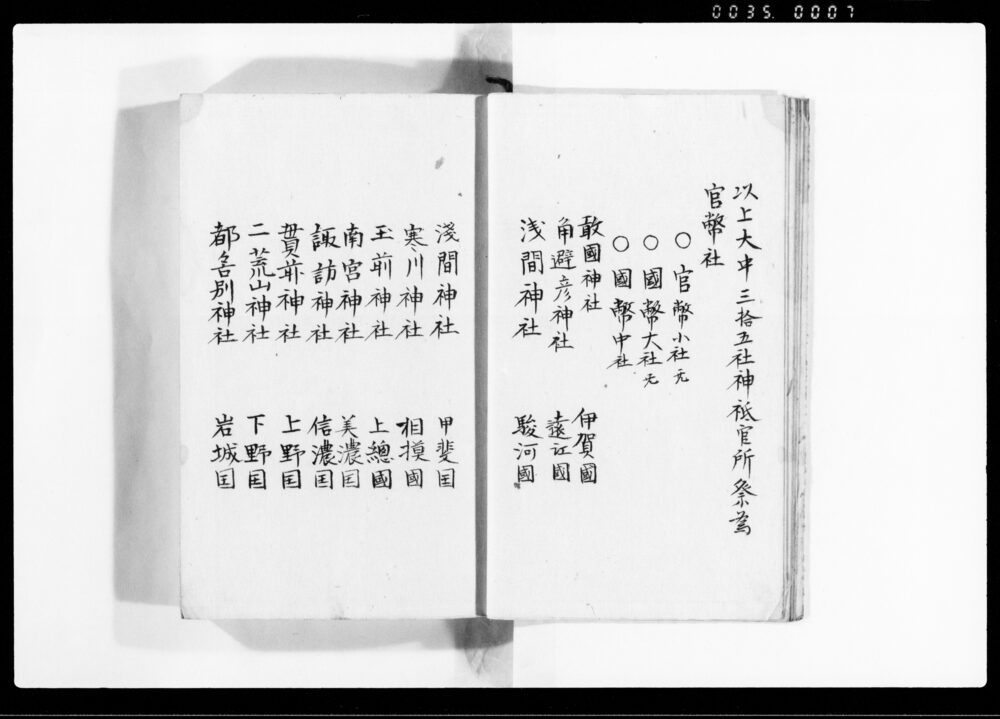 0035. 0007
以上大中三拾五社神祇官所祭為
官幣社
○官幣小社无
○國幣大社无
○國幣中社
敢國神社 伊賀國
角避彦神社 遠江國
浅間神社 駿河國
淺間神社 甲斐囯
寒川神社 相摸國
玉前神社 上總國
南宮神社 美濃囯
諏訪神社 信濃囯
貫前神社 上野囯
二荒山神社 下野囯
都々別神社 岩城囯